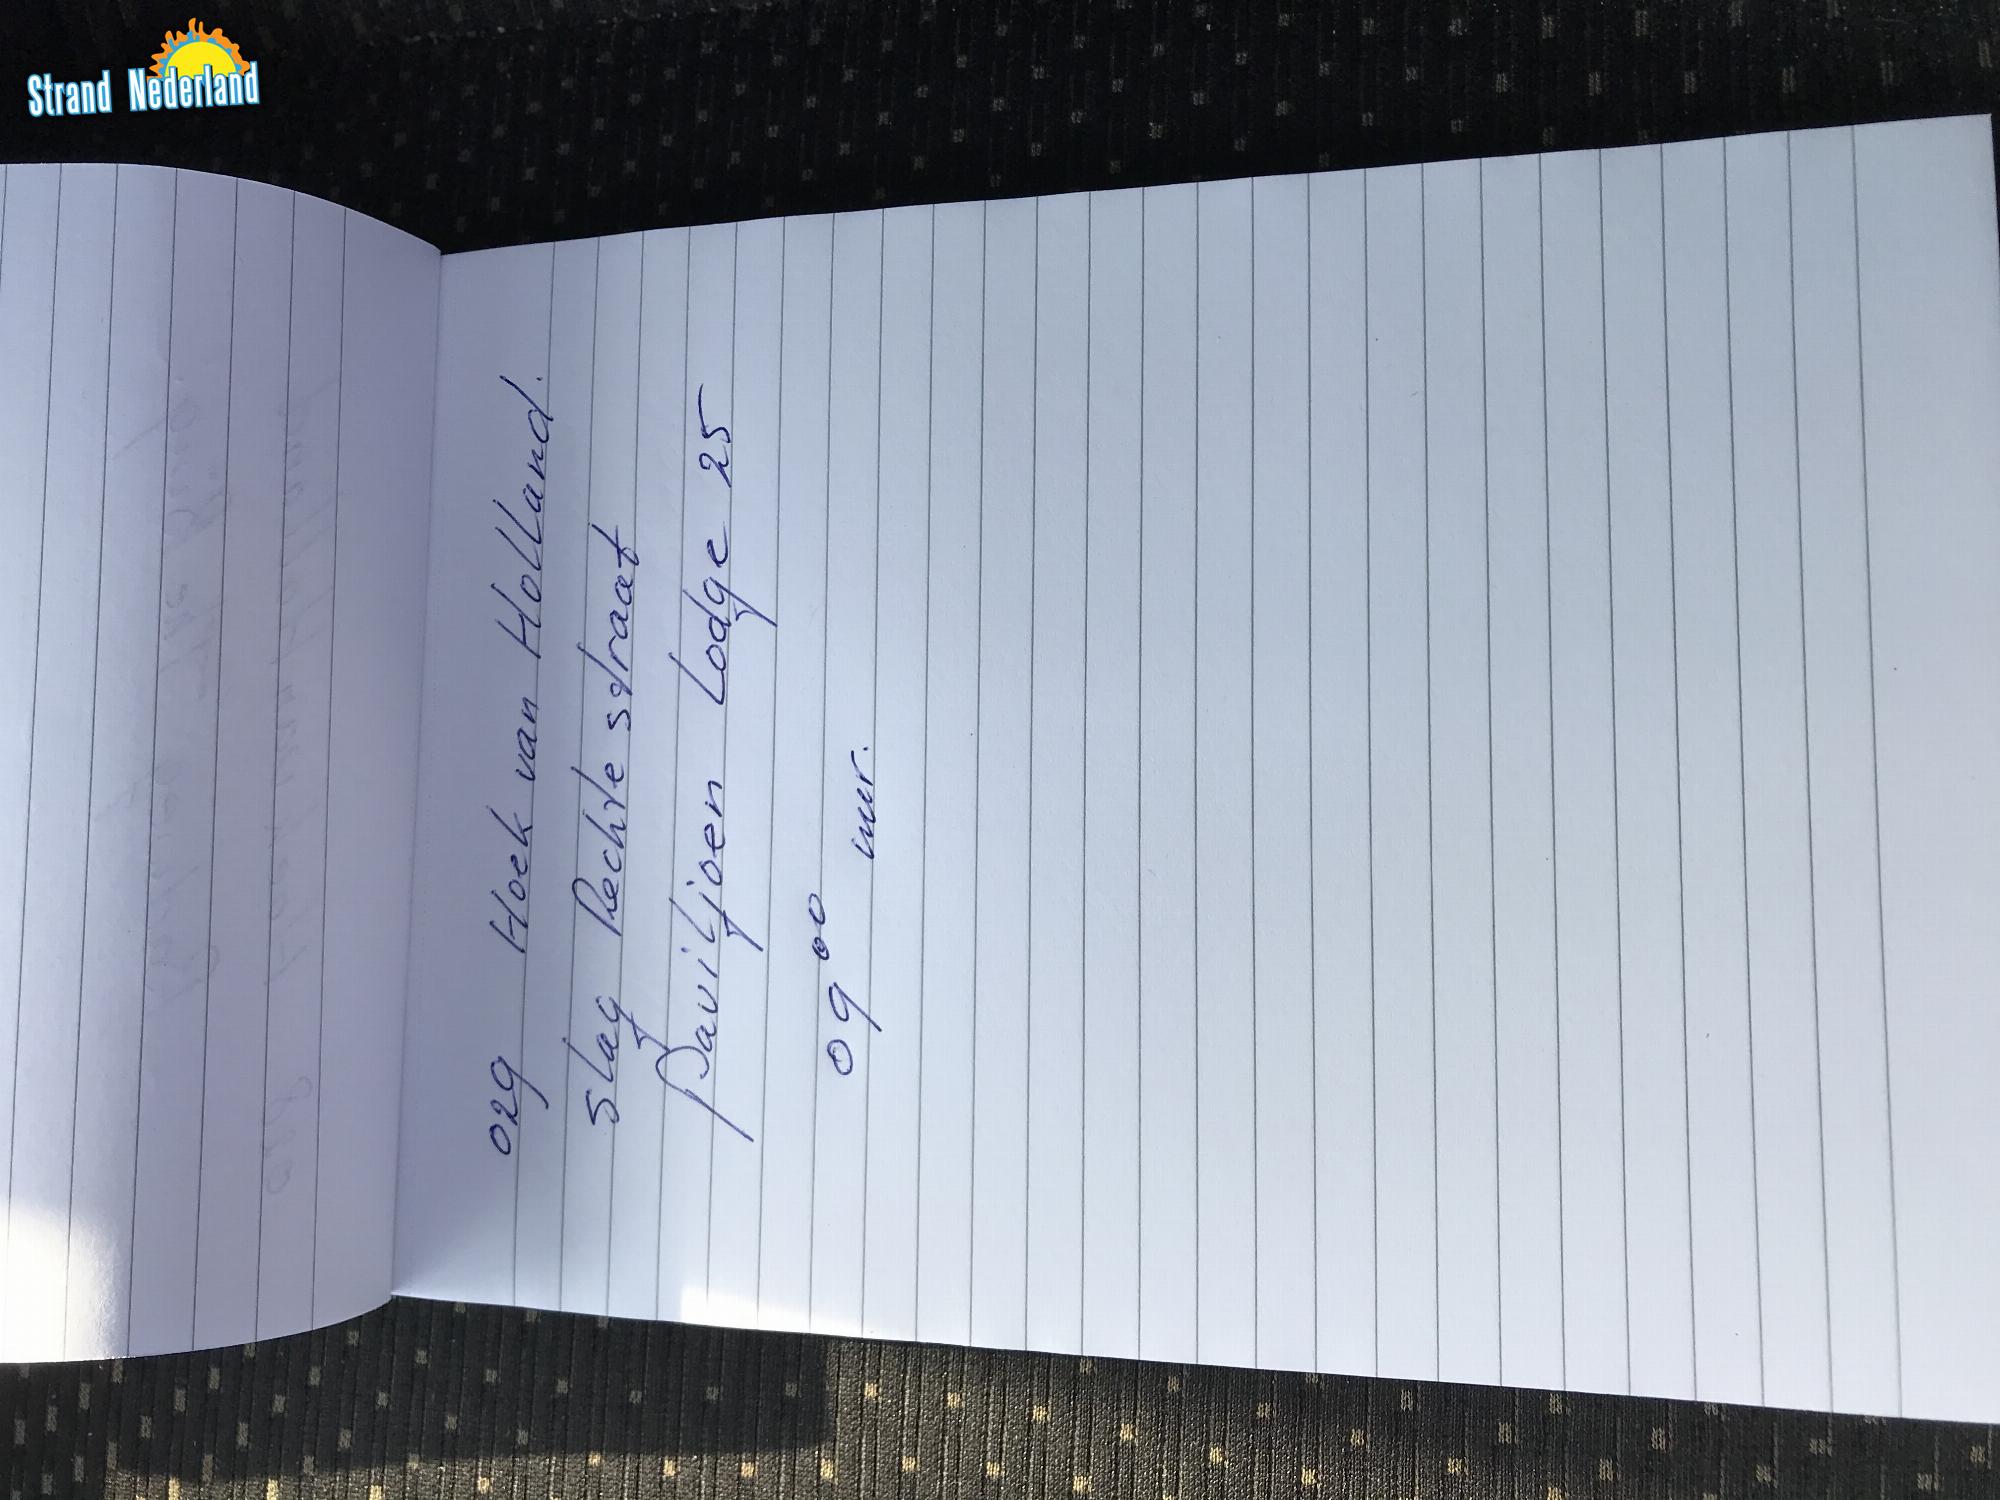 Strand Nederland
029 Hoek van Holland.
Slag Rechte straat
Paviljoen Lodge 25
09⁰⁰ uur.